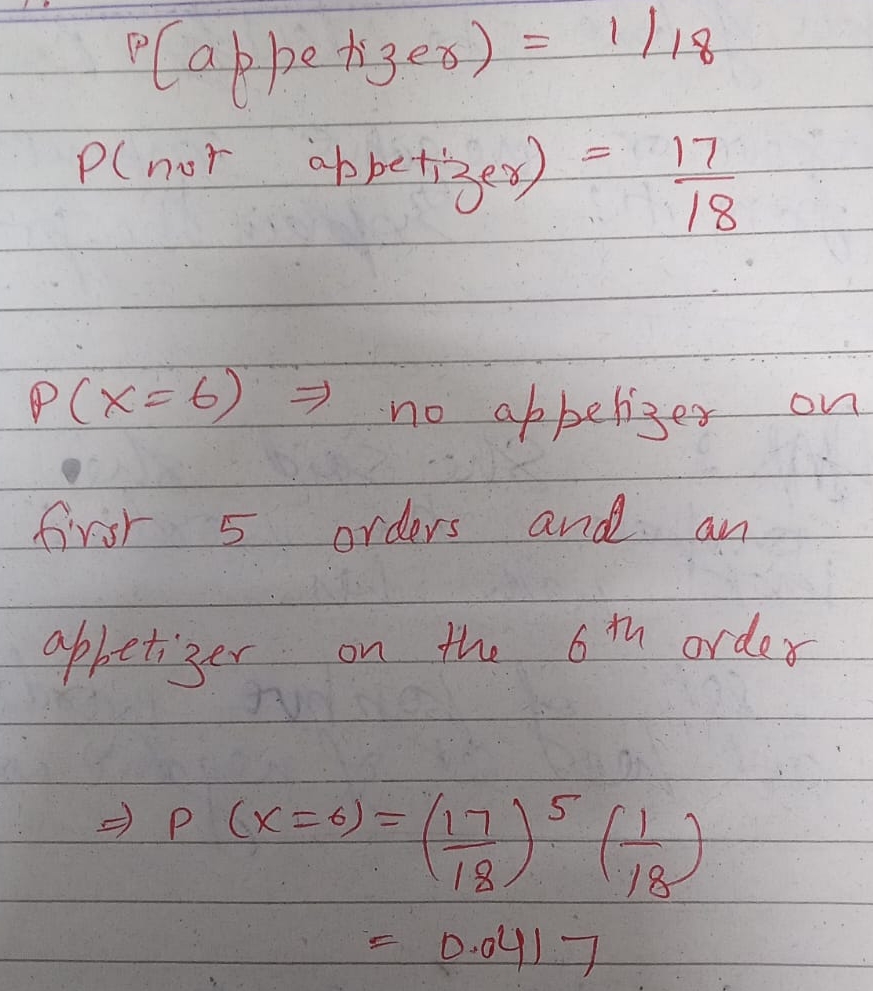 P(appetizer) = 1/18
P(not appetizer) = 17/18
P(X=6) ⇒ no appetizer on
first 5 orders and an
appetizer on the 6th order
⇒ P (X=6) = (17/18)^5 (1/18)
= 0.0417